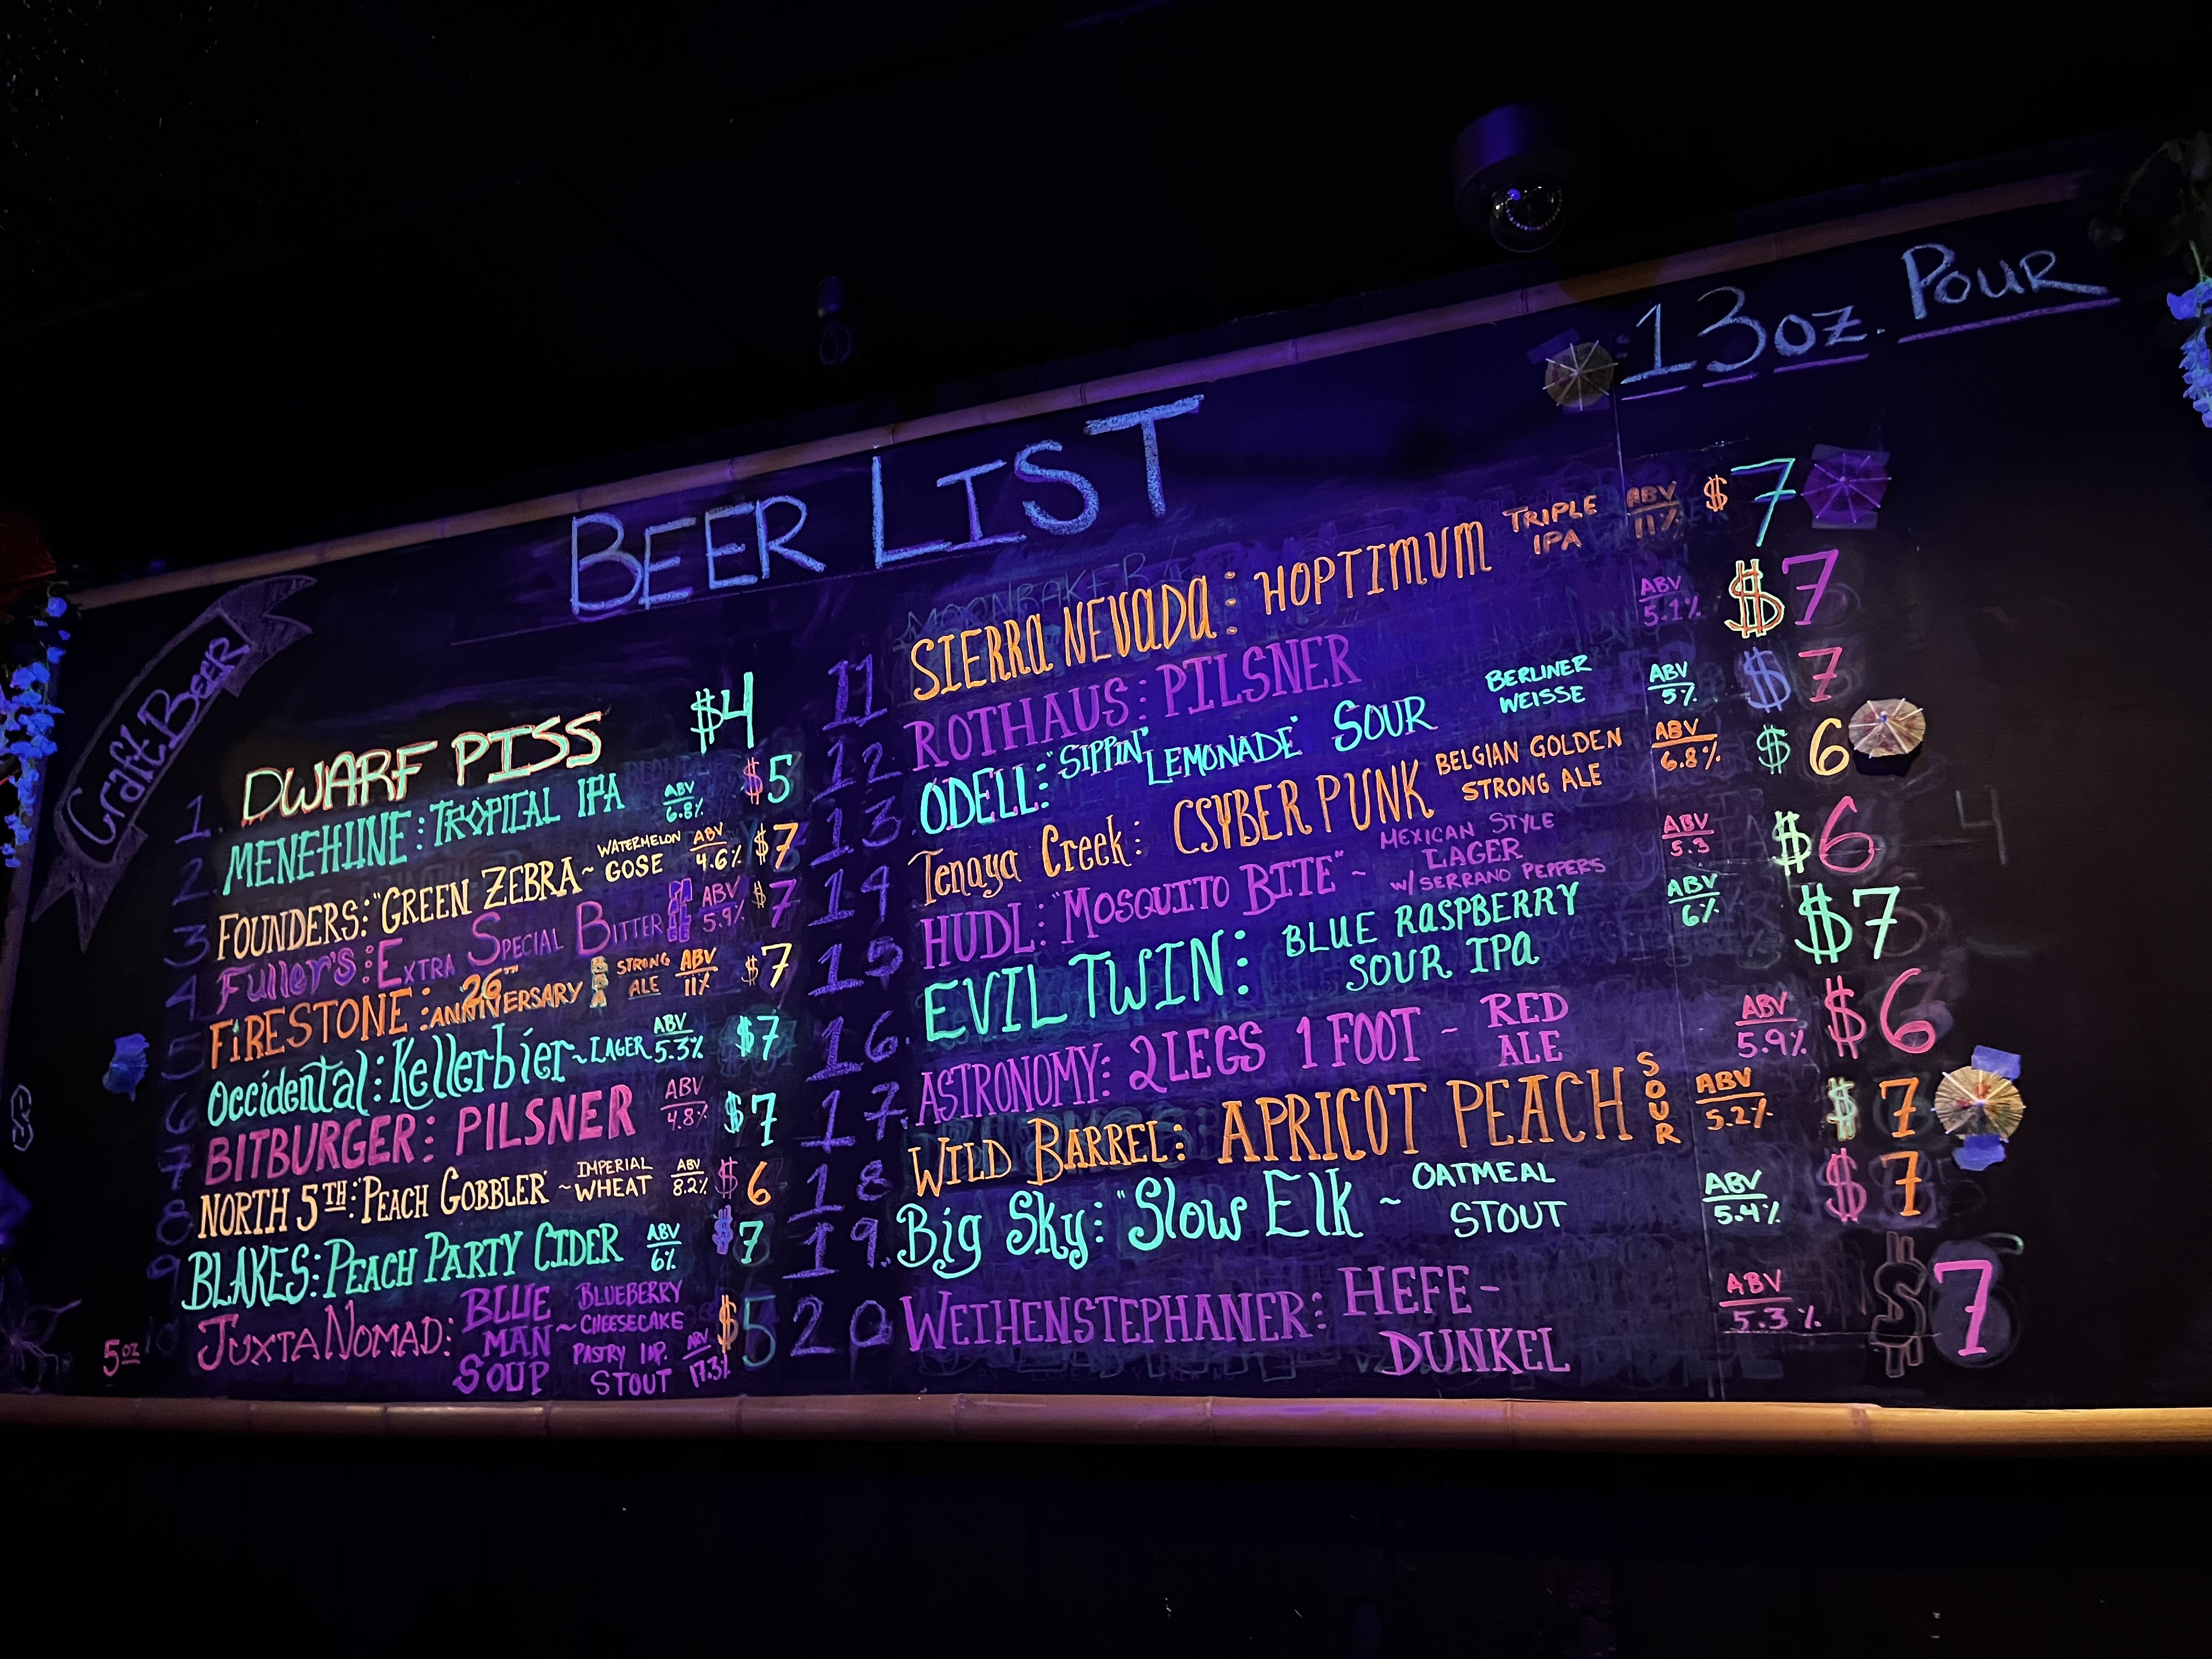 BEER LIST
13oz. POUR
Craft Beer
1. DWARF PISS $4
2 MENEHUNE: TROPICAL IPA ABV 6.8% $5
3 FOUNDERS: "GREEN ZEBRA ~ WATERMELON GOSE ABV 4.6% $7
4 Fuller's: EXTRA SPECIAL BITTER ABV 5.9% $7
5 FIRESTONE: 26TH ANNIVERSARY STRONG ALE ABV 11% $7
6 Occidental: Kellerbier ~ LAGER ABV 5.3% $7
7 BITBURGER: PILSNER ABV 4.8% $7
8 NORTH 5TH: 'PEACH GOBBLER' ~ IMPERIAL WHEAT ABV 8.2% $6
9 BLAKES: PEACH PARTY CIDER ABV 6% $7
5oz 10 JUXTA NOMAD: BLUE MAN SOUP ~ BLUEBERRY CHEESECAKE PASTRY IMP. STOUT ABV 17.3% $5
11 SIERRA NEVADA: HOPTIMUM TRIPLE IPA ABV 11% $7
12 ROTHAUS: PILSNER ABV 5.1% $7
13 ODELL: "SIPPIN' LEMONADE" SOUR BERLINER WEISSE ABV 5% $7
14 Tenaya Creek: CSYBER PUNK BELGIAN GOLDEN STRONG ALE ABV 6.8% $6
15 HUDL: "MOSQUITO BITE" ~ MEXICAN STYLE LAGER W/ SERRANO PEPPERS ABV 5.3 $6
16. EVIL TWIN: BLUE RASPBERRY SOUR IPA ABV 6% $7
17. ASTRONOMY: 2 LEGS 1 FOOT ~ RED ALE ABV 5.9% $6
18 WILD BARREL: APRICOT PEACH SOUR ABV 5.2% $7
19. Big Sky: "Slow Elk ~ OATMEAL STOUT ABV 5.4% $7
20 WEIHENSTEPHANER: HEFE-DUNKEL ABV 5.3% $7